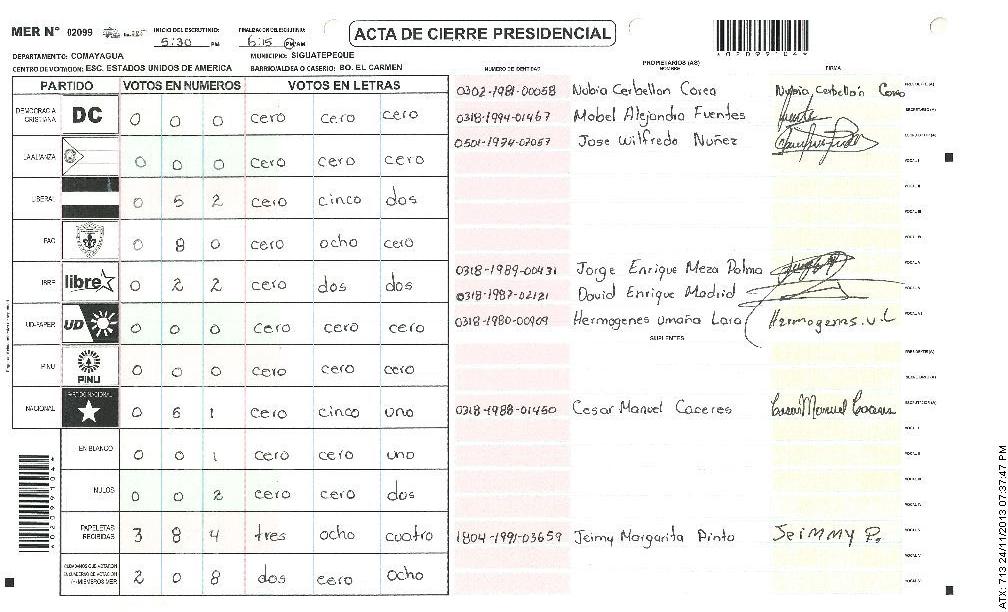 MER Nº 02099 INICIO DEL ESCRUTINIO: 5:30 PM FINALIZACION ESCRUTINIO: 6:15 PM/AM
ACTA DE CIERRE PRESIDENCIAL
DEPARTAMENTO: COMAYAGUA MUNICIPIO: SIGUATEPEQUE
CENTRO DE VOTACION: ESC. ESTADOS UNIDOS DE AMERICA BARRIO/ALDEA O CASERIO: BO. EL CARMEN
NUMERO DE IDENTIDAD PROPIETARIOS (AS) NOMBRE FIRMA
PARTIDO VOTOS EN NUMEROS VOTOS EN LETRAS
DEMOCRACIA CRISTIANA DC 0 0 0 cero cero cero
LA ALIANZA 0 0 0 cero cero cero
LIBERAL 0 5 2 cero cinco dos
FAC 0 8 0 cero ocho cero
LIBRE libre 0 2 2 cero dos dos
UD-FAPER UD 0 0 0 cero cero cero
PINU PINU 0 0 0 cero cero cero
NACIONAL PARTIDO NACIONAL 0 5 1 cero cinco uno
EN BLANCO 0 0 1 cero cero uno
NULOS 0 0 2 cero cero dos
PAPELETAS RECIBIDAS 3 8 4 tres ocho cuatro
CIUDADANOS QUE VOTARON MIEMBROS MER 2 0 8 dos cero ocho
0302-1981-00058 Nubia Cerbellon Corea Nubia Cerbellón Corea
0318-1994-01467 Mabel Alejandra Fuentes
0501-1974-07057 Jose Wilfredo Nuñez
0318-1989-00431 Jorge Enrique Meza Palma
0318-1987-02121 David Enrique Madrid
0318-1980-00909 Hermogenes Umaña Lara Hermogenes.U.L
SUPLENTES
0318-1988-01450 Cesar Manuel Caceres Cesar Manuel Caceres
1804-1991-03659 Jeimy Margarita Pinto Jeimmy P.
ATX: 713 24/11/2013 07:37:47 PM